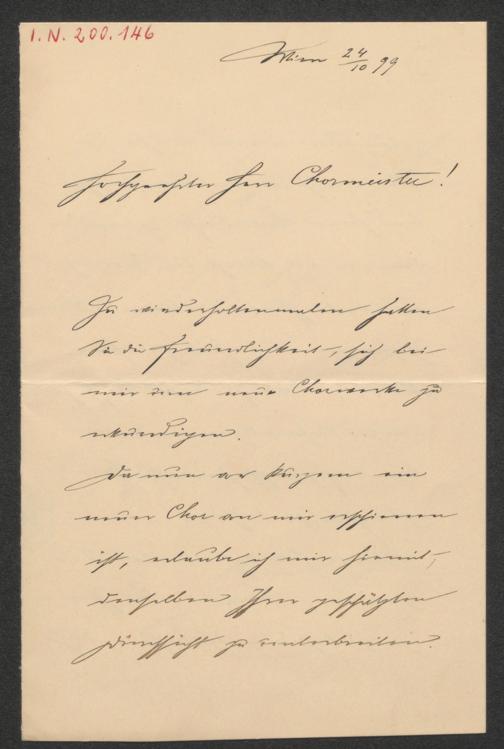 I.N. 200.146
Wien 24/10 99
Hochgeehrter Herr Chormeister!
Zu wiederholtenmalen hatten
Sie die Freundlichkeit, sich bei
mir um neue Chorwerke zu
erkundigen.
Da nun vor Kurzem ein
neuer Chor von mir erschienen
ist, erlaube ich mir hiemit,
denselben Ihrer geschätzten
Durchsicht zu unterbreiten.